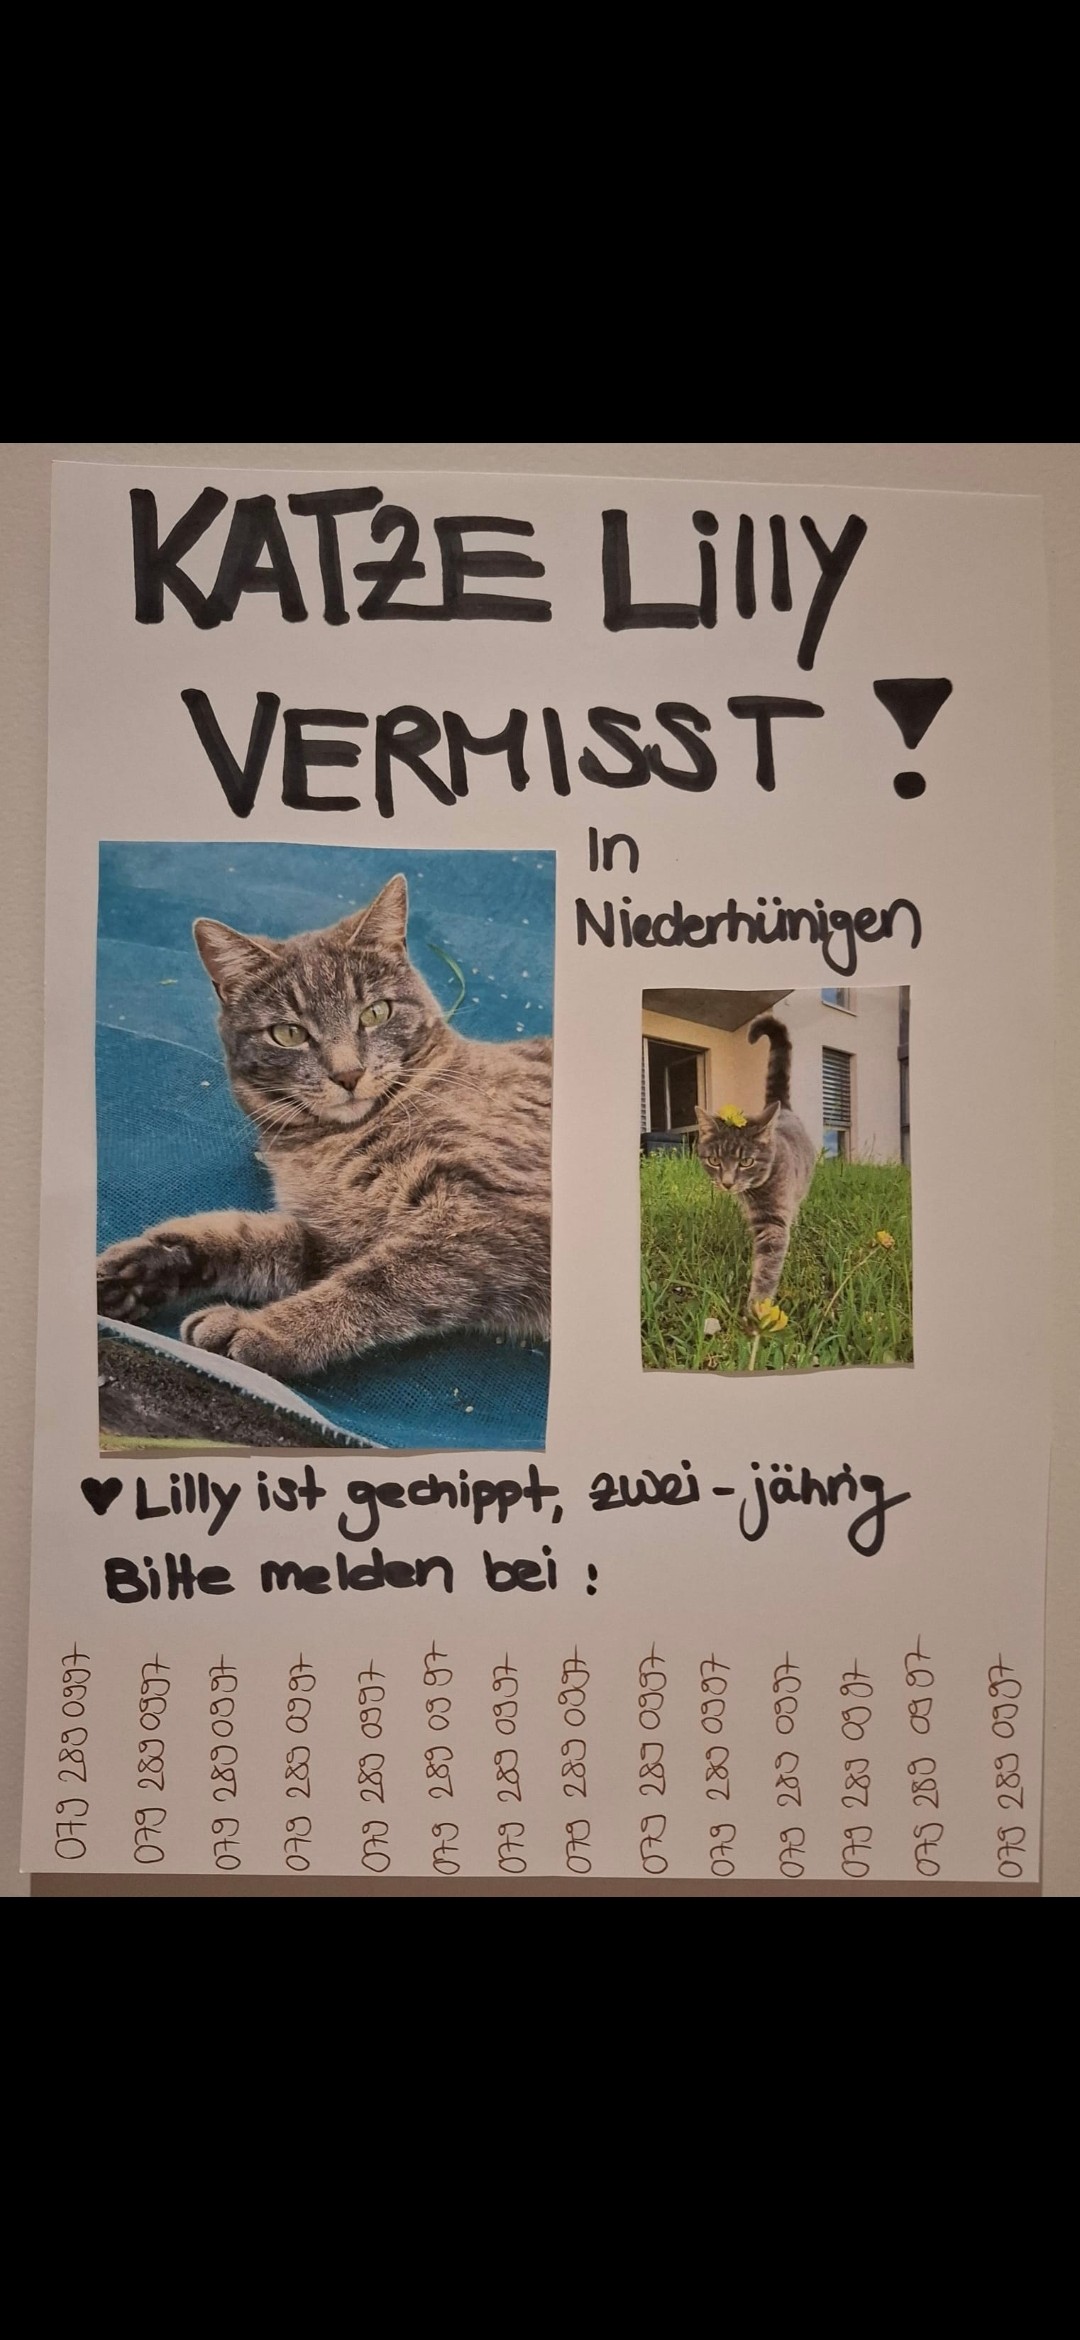 KATZE Lilly
VERMISST !
In
Niederhünigen
♥ Lilly ist gechippt, zwei-jährig
Bitte melden bei :
079 289 0997
079 289 0997
079 289 0997
079 289 0997
079 289 0997
079 289 0997
079 289 0997
079 289 0997
079 289 0997
079 289 0997
079 289 0997
079 289 0997
079 289 0997
079 289 0997